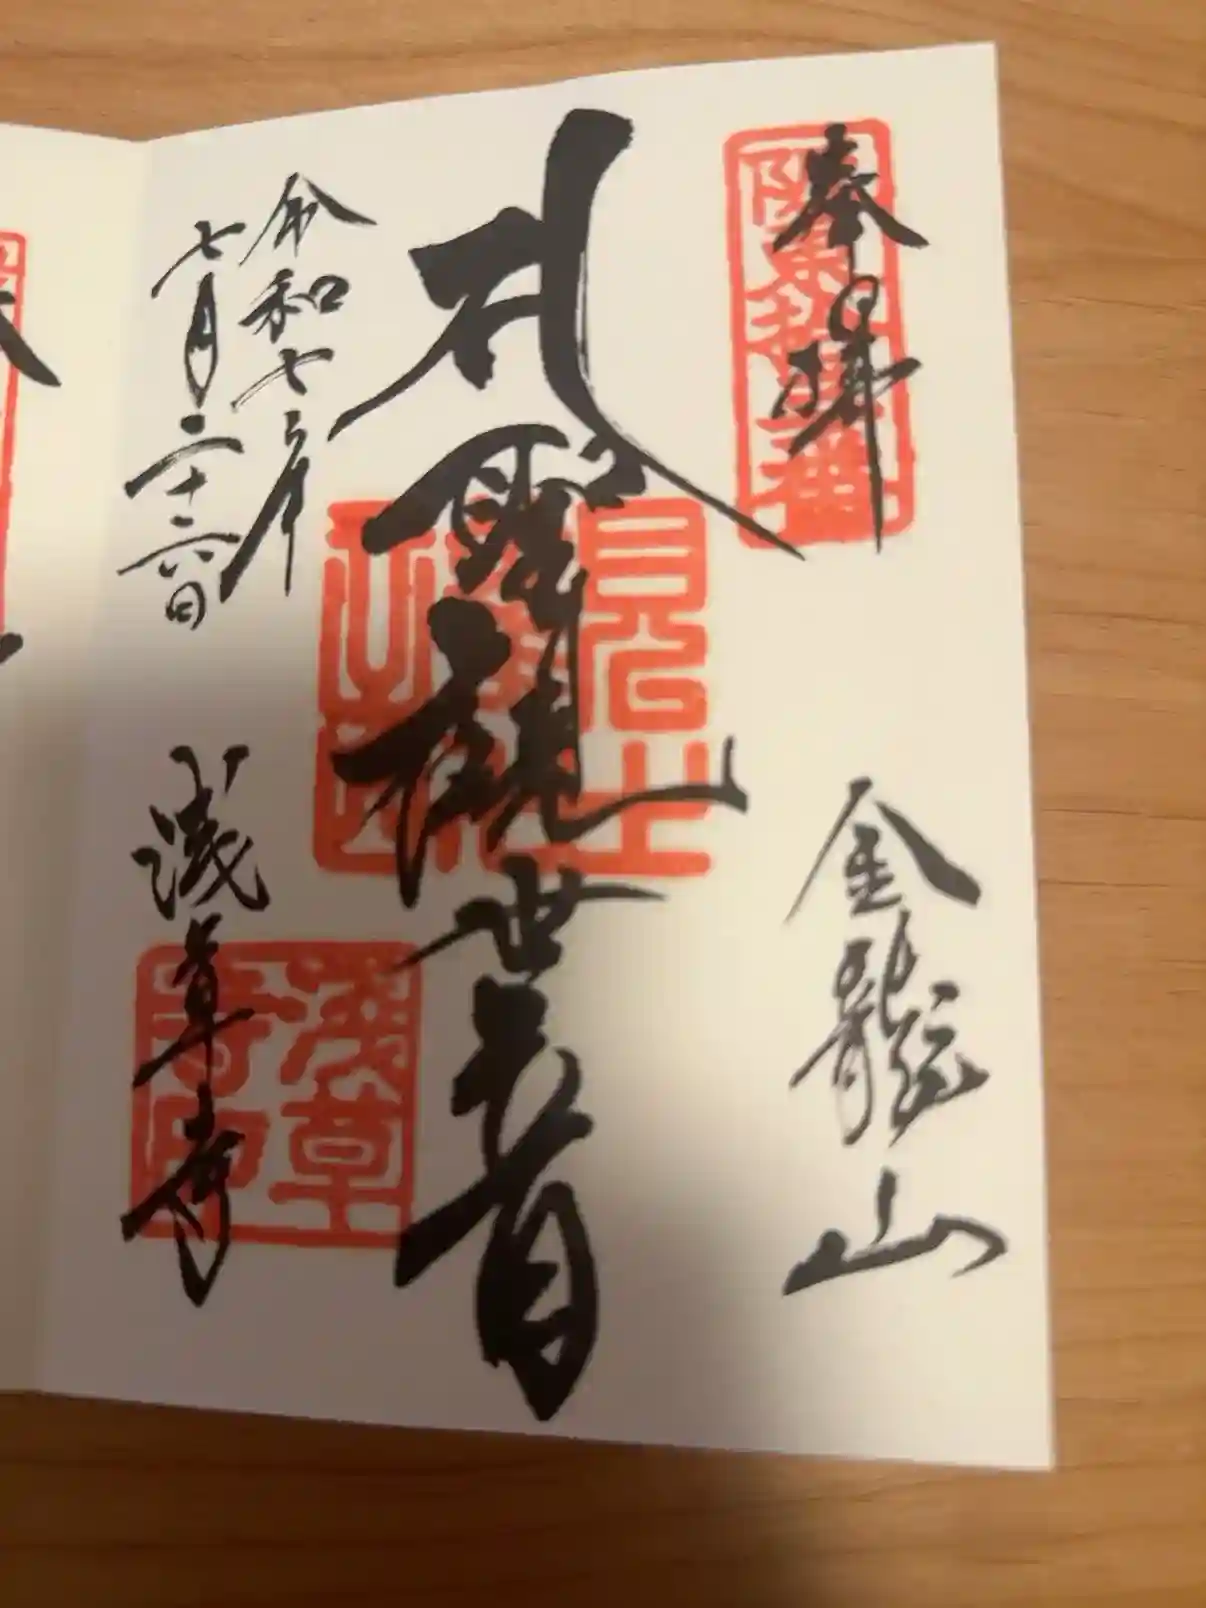 奉拝
阪東拾三番
金龍山
聖観世音
令和七年
七月二十六日
浅草寺
浅草
寺印